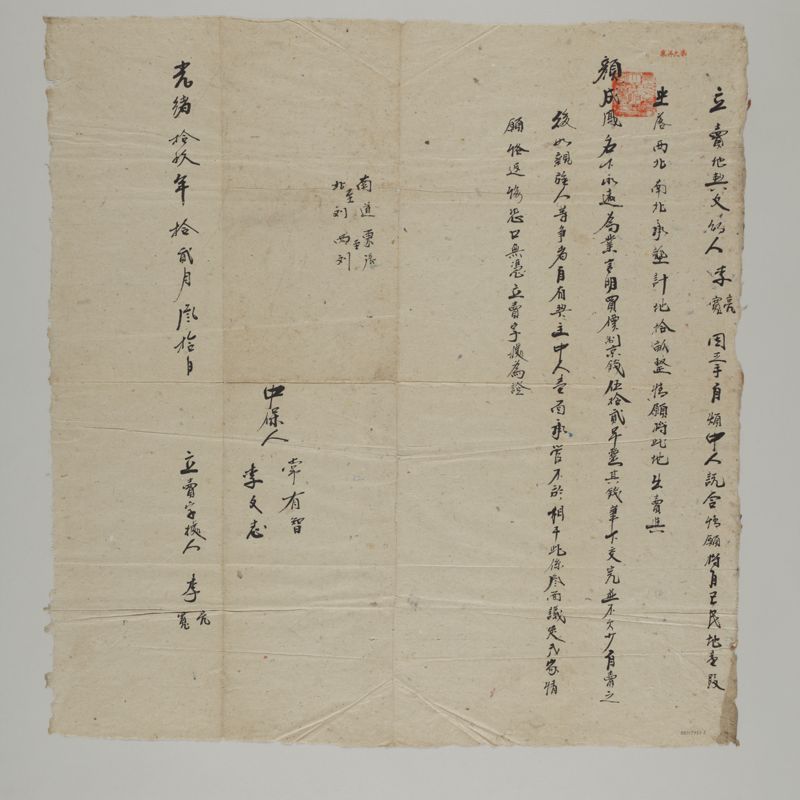 立賣地契文約人李亮寬因手自煩中人說合情願將自己民地壹段
坐落西北南北承墊計地拾畝整情願將此地出賣與
顏成鳳名下永遠為業言明買價制京錢伍拾貳千整其錢筆下交完並不欠少自賣之
後如親族人等争者自有契主中人壹面承管不於相干此係愿兩議史氏家情
願恪返悔恐口無憑立賣字據為證
南道 東張
北至刘 西至刘
中保人 常有智
李文志
光緒拾玖年拾貳月叁拾日 立賣字據人 李亮寬